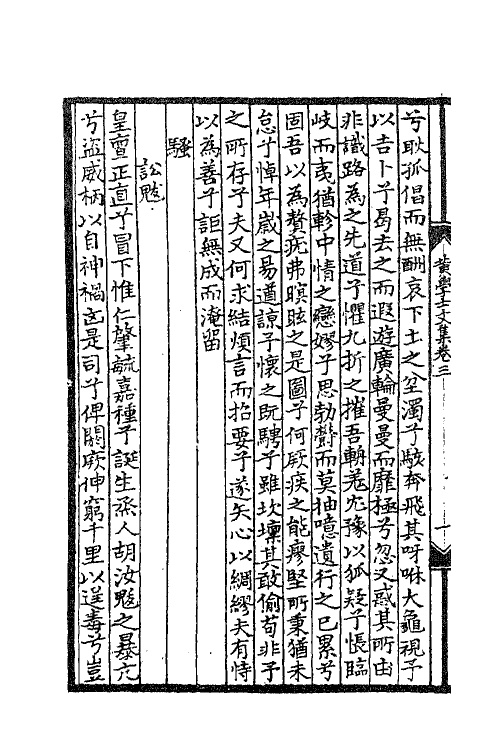 黄學士文集卷三
一
兮耿孤倡而無酬哀下土之坌濁子駭奔飛其呀咻大龜視予
以吉卜兮曷去之而遐遊廣輪曼曼而靡極兮忽又惑其所由
非識路為之先道子懼九折之摧吾輈羌宂豫以狐疑子悵臨
岐而夷猶軫中情之戀嫪子思勃鬱而莫抽噫遺行之已累兮
固吾以為贅疣弗瞑眩之是圖子何厥疾之能瘳堅所秉猶未
怠子悼年嵗之易遒諒子懷之既騁子雖坎壈其敢偷苟非予
之所存子夫又何求結煩言而招要子遂矢心以綢繆夫有恃
以為善子詎無成而淹留
騷
訟魃
皇亶正直子冒下惟仁肇毓嘉種子誕生烝人胡汝魃之暴亢
兮盜威柄以自神禍是司子俾閼厥伸窮千里以逞毒兮豈